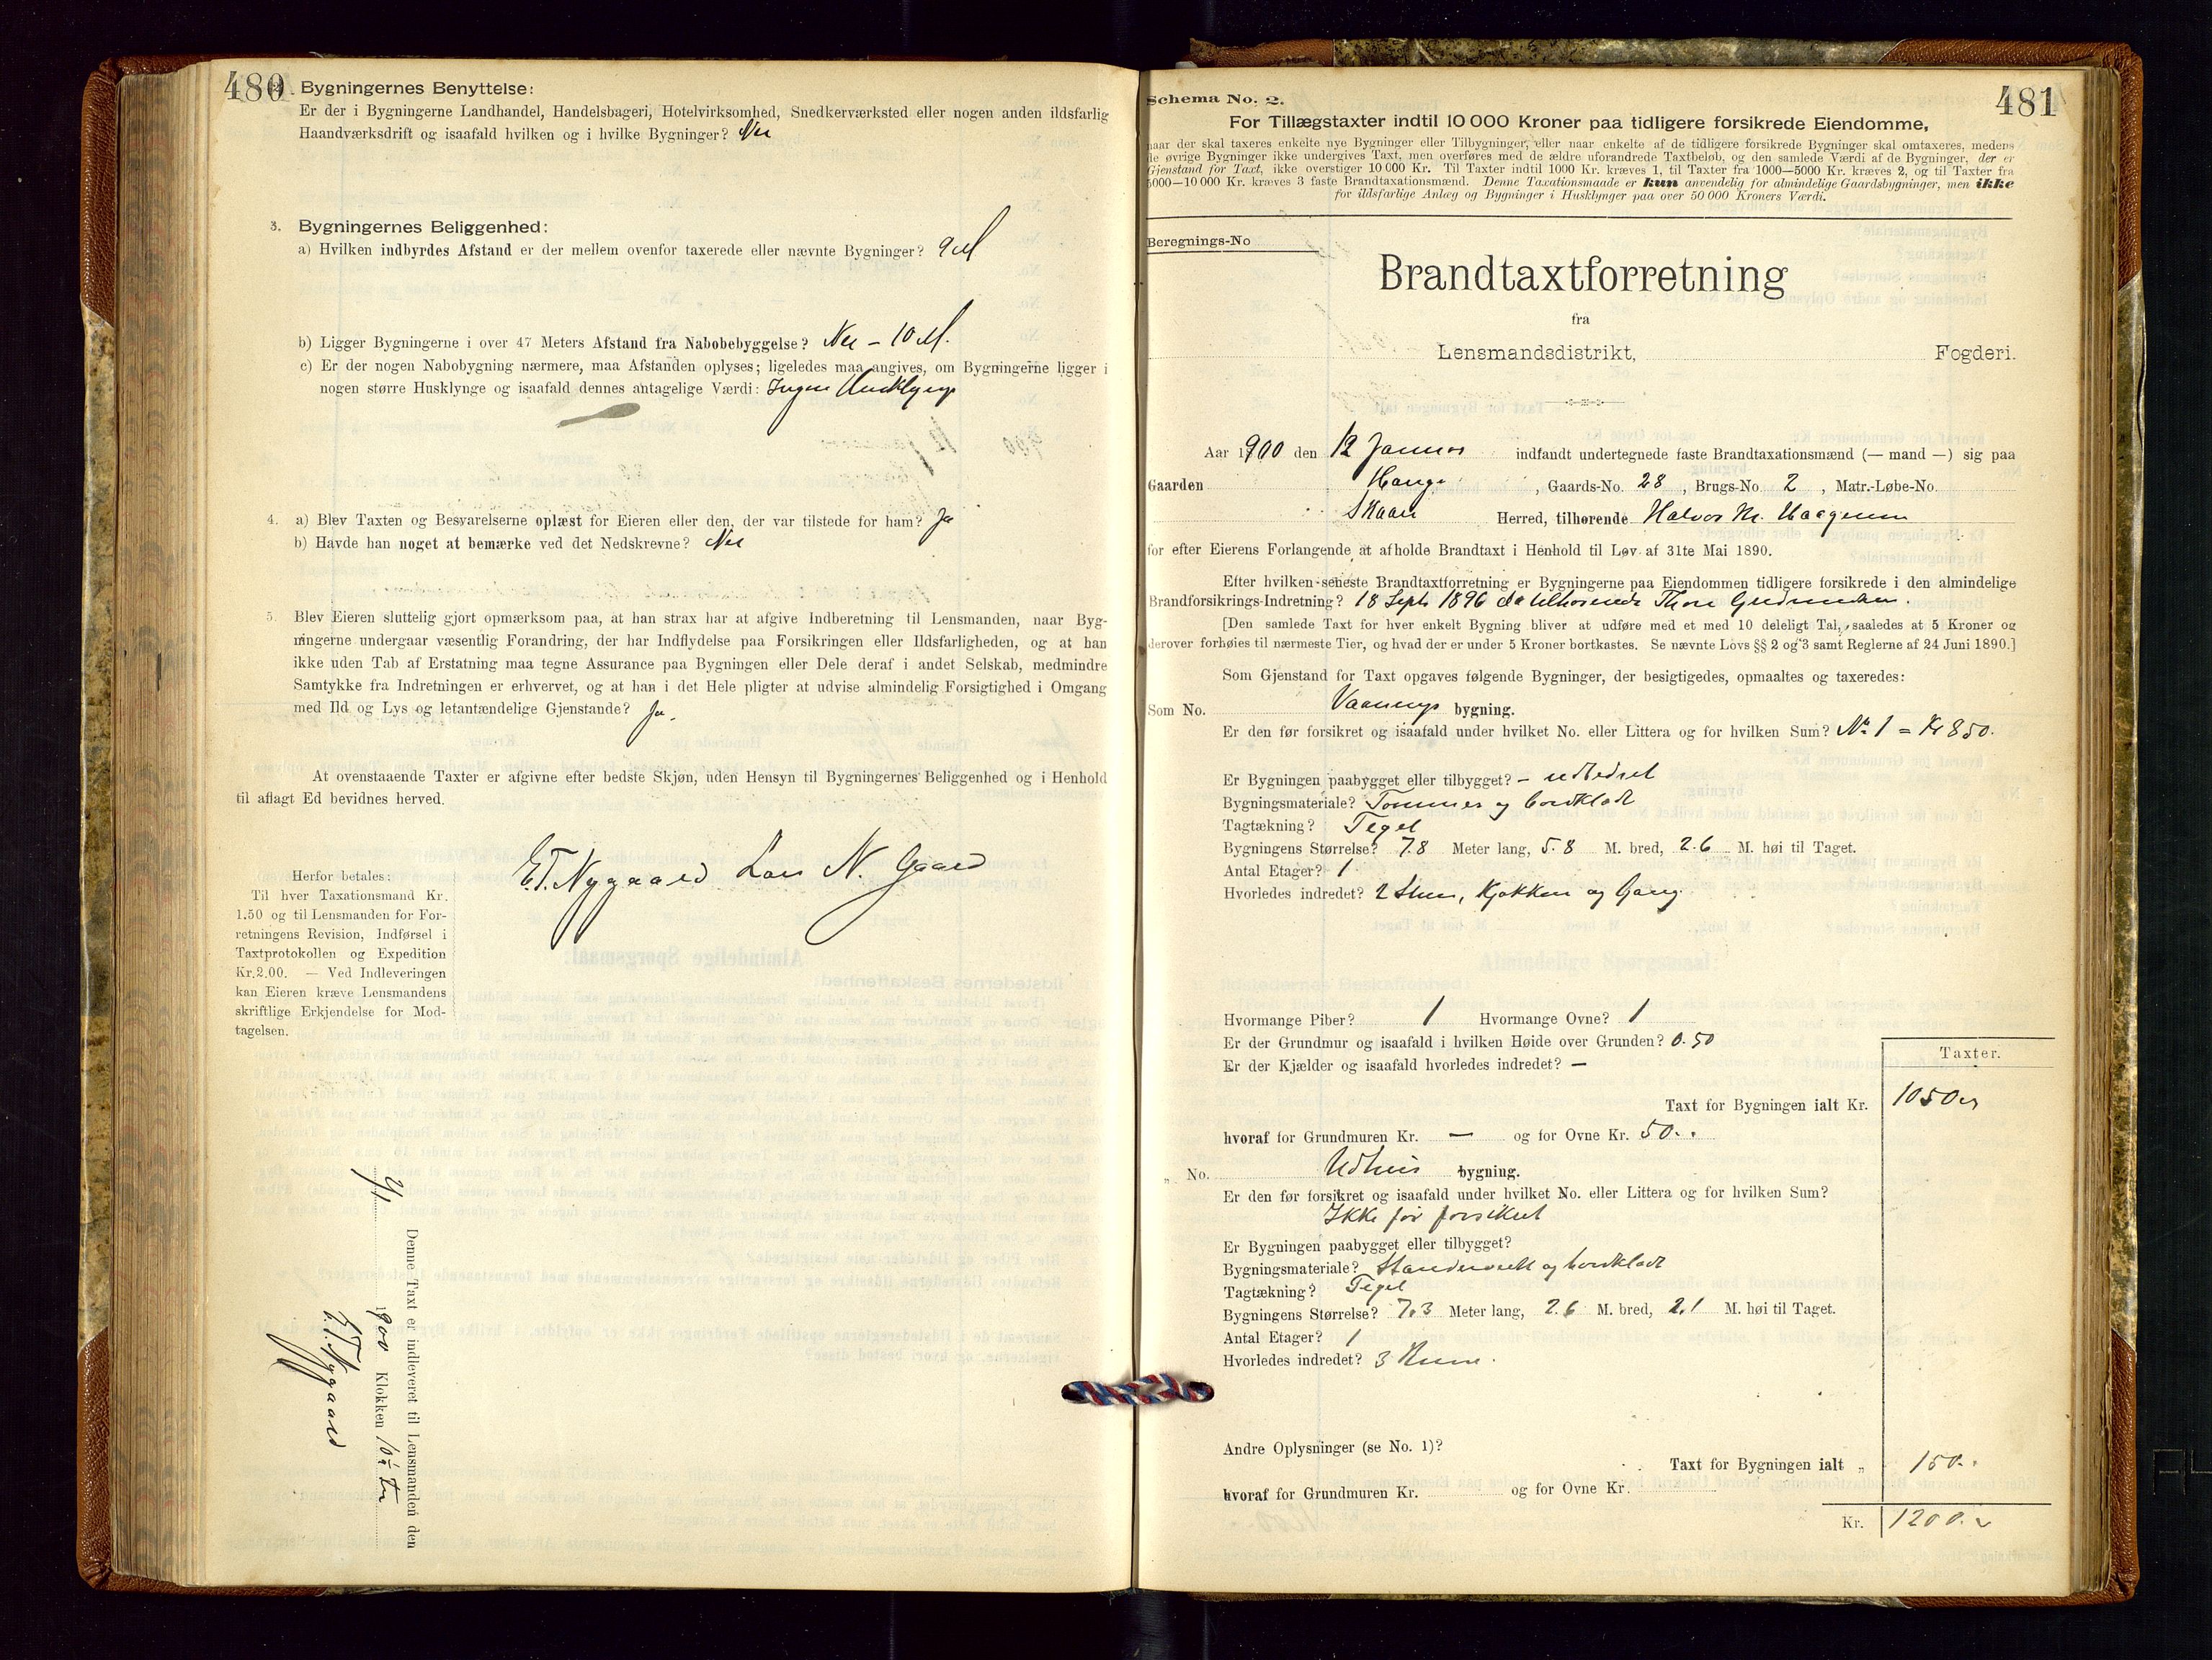 480
2. Bygningernes Benyttelse:
Er der i Bygningerne Landhandel, Handelsbageri, Hotelvirksomhed, Snedkerværksted eller nogen anden ildsfarlig
Haandværksdrift og isaafald hvilken og i hvilke Bygninger? Nei
3. Bygningernes Beliggenhed:
a) Hvilken indbyrdes Afstand er der mellem ovenfor taxerede eller nævnte Bygninger? 9 M
b) Ligger Bygningerne i over 47 Meters Afstand fra Nabobebyggelse? Nei – 10 M.
c) Er der nogen Nabobygning nærmere, maa Afstanden oplyses; ligeledes maa angives, om Bygningerne ligger i
nogen større Husklynge og isaafald dennes antagelige Værdi: Ingen Husklynge
4. a) Blev Taxten og Besvarelserne oplæst for Eieren eller den, der var tilstede for ham? Ja
b) Havde han noget at bemærke ved det Nedskrevne? Nei
5. Blev Eieren sluttelig gjort opmærksom paa, at han strax har at afgive Indberetning til Lensmanden, naar Byg-
ningerne undergaar væsentlig Forandring, der har Indflydelse paa Forsikringen eller Ildsfarligheden, og at han
ikke uden Tab af Erstatning maa tegne Assurance paa Bygningen eller Dele deraf i andet Selskab, medmindre
Samtykke fra Indretningen er erhvervet, og at han i det Hele pligter at udvise almindelig Forsigtighed i Omgang
med Ild og Lys og letantændelige Gjenstande? Ja.
At ovenstaaende Taxter er afgivne efter bedste Skjøn, uden Hensyn til Bygningernes Beliggenhed og i Henhold
til aflagt Ed bevidnes herved.
E.T. Nygaard Lars N. Gaard
Herfor betales:
Til hver Taxationsmand Kr.
1.50 og til Lensmanden for For-
retningens Revision, Indførsel i
Taxtprotokollen og Expedition
Kr. 2.00. — Ved Indleveringen
kan Eieren kræve Lensmandens
skriftlige Erkjendelse for Mod-
tagelsen.
Denne Taxt er indleveret til Lensmanden den
1900 Klokken
E.T. Nygaard
481
Schema No. 2.
For Tillægstaxter indtil 10 000 Kroner paa tidligere forsikrede Eiendomme,
naar der skal taxeres enkelte nye Bygninger eller Tilbygninger, eller naar enkelte af de tidligere forsikrede Bygninger skal omtaxeres, medens
de øvrige Bygninger ikke undergives Taxt, men overføres med de ældre uforandrede Taxtbeløb, og den samlede Værdi af de Bygninger, der er
Gjenstand for Taxt, ikke overstiger 10 000 Kr. Til Taxter indtil 1000 Kr. kræves 1, til Taxter fra 1000—5000 Kr. kræves 2, og til Taxter fra
5000—10 000 Kr. kræves 3 faste Brandtaxationsmænd. Denne Taxationsmaade er kun anvendelig for almindelige Gaardsbygninger, men ikke
for ildsfarlige Anlæg og Bygninger i Husklynger paa over 50 000 Kroners Værdi.
Beregnings-No
Brandtaxtforretning
fra
Lensmandsdistrikt, Fogderi.
Aar 1900 den 12 Januar indfandt undertegnede faste Brandtaxationsmænd (— mand —) sig paa
Gaarden Hauge, Gaards-No. 28, Brugs-No. 2, Matr.-Løbe-No.
Skaare Herred, tilhørende Halvor M. Haagensen
for efter Eierens Forlangende at afholde Brandtaxt i Henhold til Lov af 31te Mai 1890.
Efter hvilken seneste Brandtaxtforretning er Bygningerne paa Eiendommen tidligere forsikrede i den almindelige
Brandforsikrings-Indretning? 18 Septr 1896 da tilhørende Thore Gudmundsen.
[Den samlede Taxt for hver enkelt Bygning bliver at udføre med et med 10 deleligt Tal, saaledes at 5 Kroner og
derover forhøies til nærmeste Tier, og hvad der er under 5 Kroner bortkastes. Se nævnte Lovs §§ 2 og 3 samt Reglerne af 24 Juni 1890.]
Som Gjenstand for Taxt opgaves følgende Bygninger, der besigtigedes, opmaaltes og taxeredes:
Som No. Vaanings bygning.
Er den før forsikret og isaafald under hvilket No. eller Littera og for hvilken Sum? No 1 = Kr 850.
Er Bygningen paabygget eller tilbygget? – udbedret
Bygningsmateriale? Tømmer og bordklædt
Tagtækning? Tegel
Bygningens Størrelse? 7.8 Meter lang, 5.8 M. bred, 2.6 M. høi til Taget.
Antal Etager? 1
Hvorledes indredet? 2 Stuer, Kjøkken og Gang
Hvormange Piber? 1 Hvormange Ovne? 1
Er der Grundmur og isaafald i hvilken Høide over Grunden? 0.50
Er der Kjælder og isaafald hvorledes indredet? —
Taxter.
Taxt for Bygningen ialt Kr. 1050
hvoraf for Grundmuren Kr. — og for Ovne Kr. 50..
„ No. Udhus bygning.
Er den før forsikret og isaafald under hvilket No. eller Littera og for hvilken Sum?
Ikke før forsikret
Er Bygningen paabygget eller tilbygget?
Bygningsmateriale? Standerværk og bordklædt
Tagtækning? Tegel
Bygningens Størrelse? 7.3 Meter lang, 2.6 M. bred, 2.1 M. høi til Taget.
Antal Etager? 1
Hvorledes indredet? 3 Rum.
Andre Oplysninger (se No. 1)?
Taxt for Bygningen ialt „ 150.
hvoraf for Grundmuren Kr. og for Ovne Kr.
Kr. 1200.